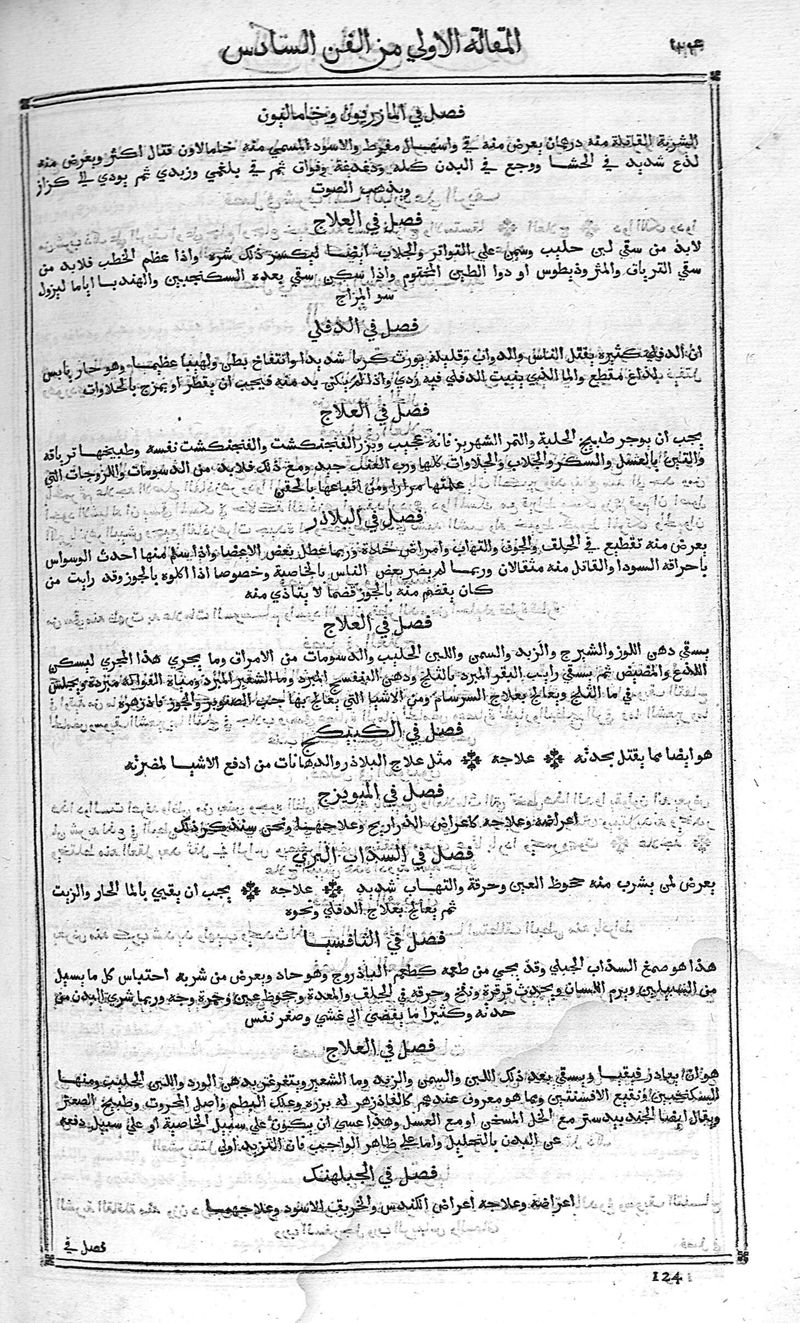 المقالة الاولي من الفن السادس
فصل في المازريون وخامالاون
الشربة القاتلة منه درهمان يعرض منه قي واسهال مفرط والاسود المسمي منه خامالاون قتال اكثر ويعرض منه
لذع شديد في الحشا ووجع في البدن كله ودغدغة وفواق ثم قي بلغمي وزبدي ثم يودي الي كزاز
ويذهب الصوت
فصل في العلاج
لابد من سقي لبن حليب وسمن علي التواتر والجلاب ايضا ليكسر ذلك شره واذا عظم الخطب فلابد من
سقي الترياق والمثروذيطوس او دوا الطين المختوم واذا سكن سقي بعده السكنجبين والهندبا اياما ليزول
سو المزاج
فصل في الدفلي
ان الدفلي كثيره يقتل الناس والدواب وقليله يورث كربا شديدا وانتفاخ بطن ولهيبا عظيما وهو حار يابس
لذاع مقطع والما الذي ينبت الدفلي فيه ردي واذا لم يكن بد منه فيجب ان يقطر او يمزج بالحلاوات
فصل في العلاج
يجب ان يوجر طبيخ الحلبة والتمر الشهريز فانه عجيب وبزر الفنجنكشت والفنجنكشت نفسه وطبيخها ترياقه
والتين بالعسل والسكر والجلاب والحلاوات كلها ورب العنب جيد ومع ذلك فلابد من الدسومات واللزوجات التي
علمتها مرارا ومن اتباعها بالحقن
فصل في البلاذر
يعرض منه تقطيع في الحلق والجوف والتهاب وامراض حادة وربما عطل بعض الاعضا واذا سلم منها احدث الوسواس
باحراقه السودا والقاتل منه مثقالان وربما لم يضر بعض الناس بالخاصية وخصوصا اذا اكلوه بالجوز وقد رايت من
كان يقضم منه بالجوز قضما لا يتاذي منه
فصل في العلاج
يسقي دهن اللوز والشيرج والزبد والسمن واللبن الحليب والدسومات من الامراق وما يجري هذا المجري ليسكن
اللذع والمضيض ثم يسقي رايب البقر المبرد بالثلج ودهن البنفسج المبرد وما الشعير المبرد ومياه الفواكه مبردة ويجلس
في ما الثلج ويعالج بعلاج السرسام ومن الاشيا التي يعالج بها حب الصنوبر والجوز باذزهره
فصل في الكبيكج
هو ايضا مما يقتل بحدته علاجه مثل علاج البلاذر والدهانات من ادفع الاشيا لمضرته
فصل في الميويزج
اعراضه وعلاجه كاعراض الذراريح وعلاجها ونحن سنذكر ذلك
فصل في السذاب البري
يعرض لمن يشرب منه جحوظ العين وحرقة والتهاب شديد علاجه يجب ان يقيي بالما الحار والزيت
ثم يعالج بعلاج الدفلي ونحوه
فصل في الثافسيا
هذا هو صمغ السذاب الجبلي وقد يحيي من طعمه كطعم الباذروج وهو حاد ويعرض من شربه احتباس كل ما يسيل
من السبيلين ويرم اللسان ويحدث قرقرة ونفخ وحرقة في الحلق والمعدة وجحوظ عين وحمرة وجه وربما شري البدن من
حدته وكثيرا ما يفضي الي غشي وصغر نفس
فصل في العلاج
هو ان يبادر فيقيا ويسقي بعد ذلك اللبن والسمن والزبد وما الشعير ويتغرغر بدهن الورد واللبن الحليب ومنها
السكنجبين ونقيع الافسنتين وما هو معروف عندهم كالفاذزهر له بزره وعلك البطم واصل المحروث وطبيخ الصعتر
ويقال ايضا الجندبيدستر مع الخل المسخن او مع العسل وهذا عسي ان يكون علي سبيل الخاصية او علي سبيل دفعه
عن البدن بالتحليل واما علي ظاهر الواجب فان التبريد اولي
فصل في الجبلهنك
اعراضه وعلاجه اعراض الكندس والخربق الاسود وعلاجهما
فصل في
124